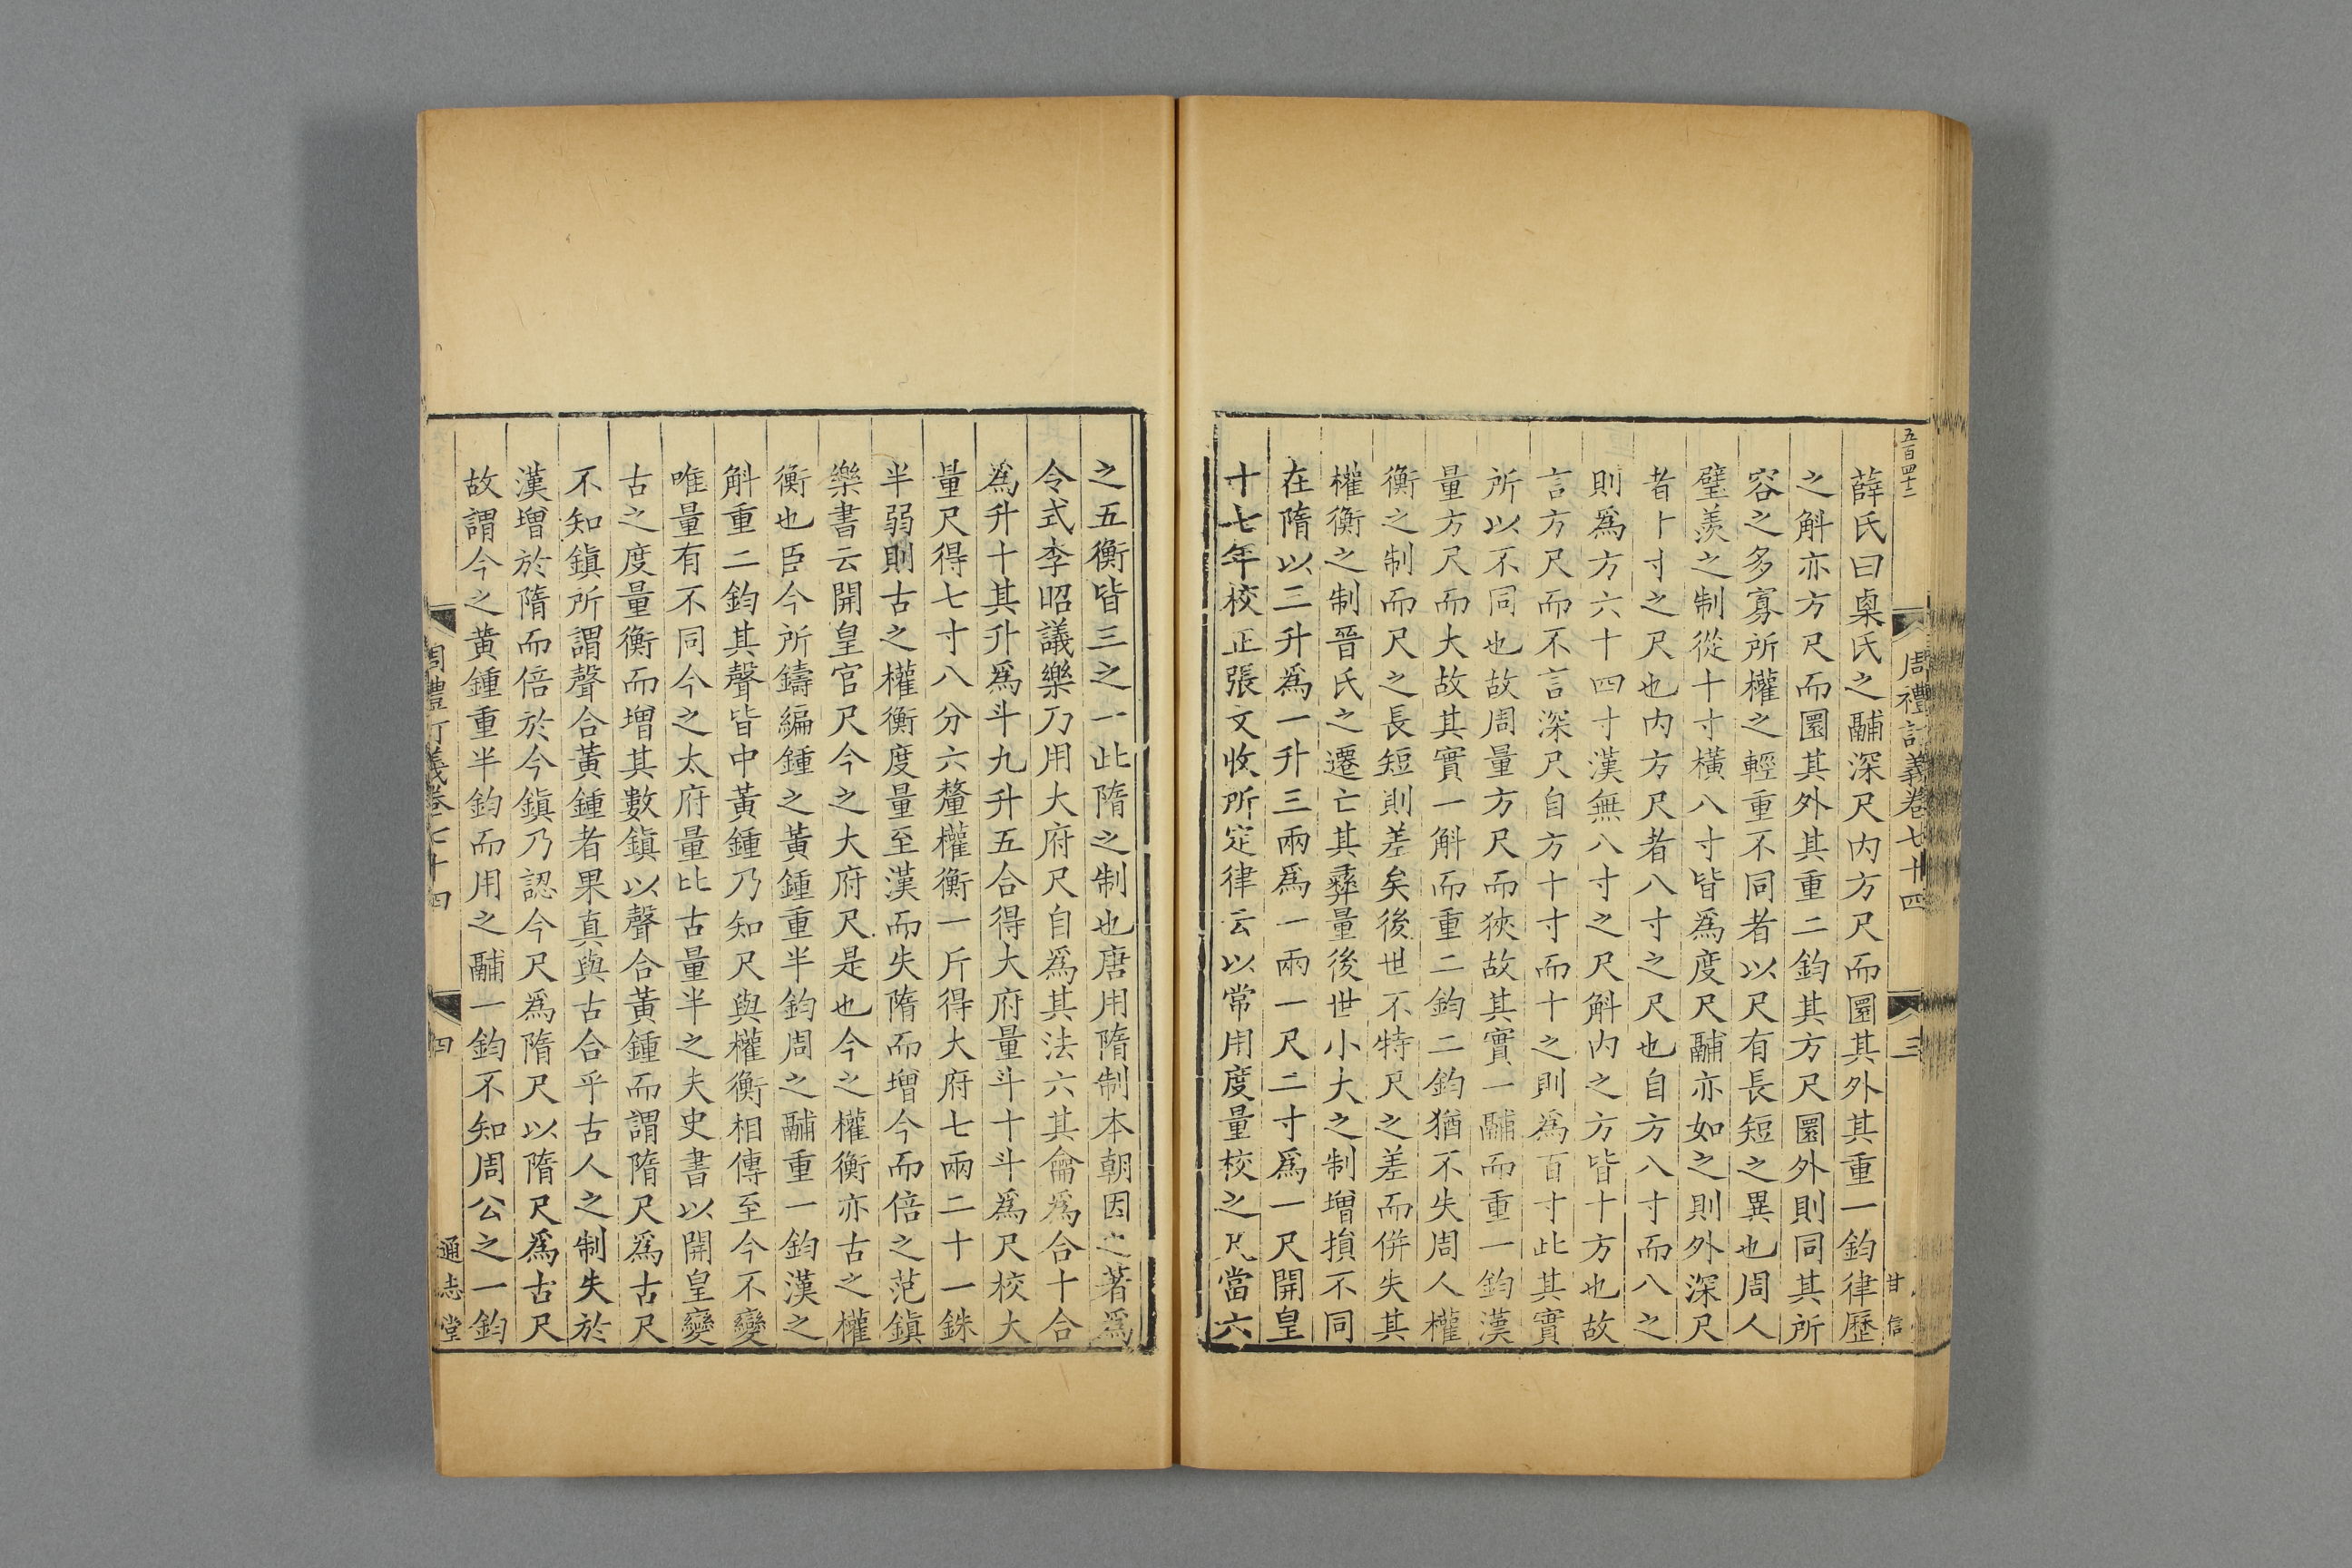 五百四十二
周禮訂義卷七十四
三
甘信
薛氏曰㮚氏之鬴深尺内方尺而圜其外其重一鈞律歷
之斛亦方尺而圜其外其重二鈞其方尺圜外則同其所
容之多寡所權之輕重不同者以尺有長短之異也周人
璧羨之制從十寸橫八寸皆爲度尺鬴亦如之則外深尺
者十寸之尺也内方尺者八寸之尺也自方八寸而八之
則爲方六十四寸漢無八寸之尺斛内之方皆十方也故
言方尺而不言深尺自方十寸而十之則爲百寸此其實
所以不同也故周量方尺而狹故其實一鬴而重一鈞漢
量方尺而大故其實一斛而重二鈞二鈞猶不失周人權
衡之制而尺之長短則差矣後世不特尺之差而倂失其
權衡之制晉氏之遷亡其彝量後世小大之制增損不同
在隋以三升爲一升三兩爲一兩一尺二寸爲一尺開皇
十七年校正張文收所定律云以常用度量校之尺當六
之五衡皆三之一此隋之制也唐用隋制本朝因之著爲
令式李昭議樂乃用大府尺自爲其法六其龠爲合十合
爲升十其升爲斗九升五合得大府量斗十斗爲尺校大
量尺得七寸八分六釐權衡一斤得大府七兩二十一銖
半弱則古之權衡度量至漢而失隋而增今而倍之范鎭
樂書云開皇官尺今之大府尺是也今之權衡亦古之權
衡也臣今所鑄編鍾之黄鍾重半鈞周之鬴重一鈞漢之
斛重二鈞其聲皆中黃鍾乃知尺與權衡相傳至今不變
唯量有不同今之太府量比古量半之夫史書以開皇變
古之度量衡而增其數鎭以聲合黃鍾而謂隋尺爲古尺
不知鎭所謂聲合黃鍾者果真與古合乎古人之制失於
漢增於隋而倍於今鎭乃認今尺爲隋尺以隋尺爲古尺
故謂今之黃鍾重半鈞而用之鬴一鈞不知周公之一鈞
周禮訂義卷七十四
四
通志堂